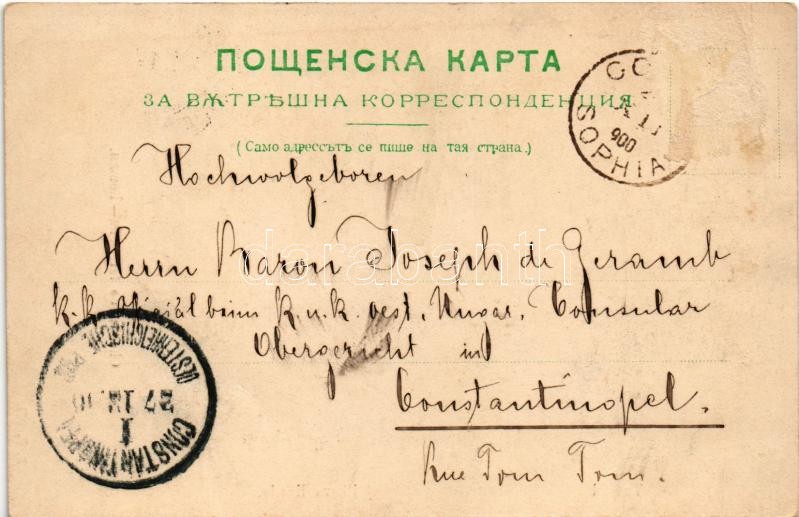 ПОЩЕНСКА КАРТА
ЗА ВѪТРѢШНА КОРРЕСПОНДЕНЦИЯ
(Само адрессътъ се пише на тая страна.)
SOPHIA
900
Hochwolgeboren
Herrn Baron Joseph de Geramb
k. k. Offizial beim k. u. k. oest. Ungar. Consular
Obergericht in
Constantinopel.
Rue Tom Tom.
CONSTANTINOPEL I
OESTERREICHISCHE POST
darabanth